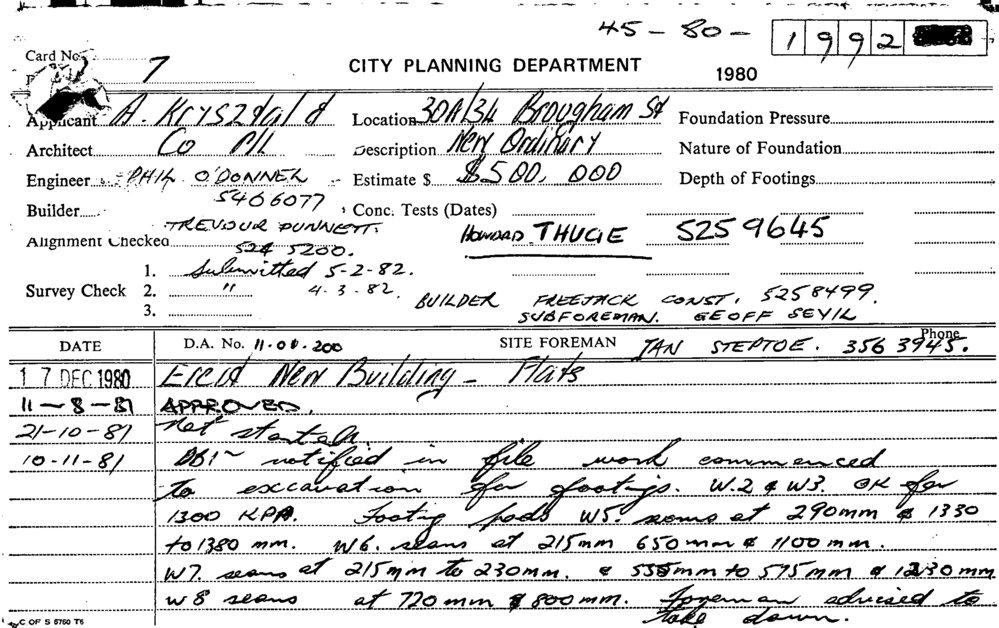 45-80- 1992
Card No. 7
CITY PLANNING DEPARTMENT 1980
Applicant A. Kryszdald Location 30A/34 Brougham St Foundation Pressure
Architect Co P/L Description New Ordinary Nature of Foundation
Engineer PHIL O'DONNEL Estimate $ $500,000 Depth of Footings
5406077
Builder Conc. Tests (Dates)
TREVOUR DUNNETT.
Alignment Checked HOWARD THUGIE 5259645
524 5200.
1. Submitted 5-2-82.
Survey Check 2. " 4.3.82. BUILDER FREEJACK CONST. 5258499.
3. SUBFOREMAN. GEOFF SEVIL
DATE D.A. No. 11.01.200 SITE FOREMAN IAN STEPTOE. Phone 356 3945.
17 DEC 1980 Erect New Building - Flats
11-8-81 APPROVED.
21-10-81 Not started.
10-11-81 notified in file work commenced
to excavation for footings. W.2 & W3. OK for
1300 KPA. Footig pads W5. seams at 290mm & 1330
to 1380 mm. W6. seams at 215mm 650mm & 1100mm.
W7. seams at 215mm to 230mm. & 555mm to 575mm & 1230mm
W8 seams at 720mm & 800mm. Foreman advised to
take down.
C OF S 5750 T6